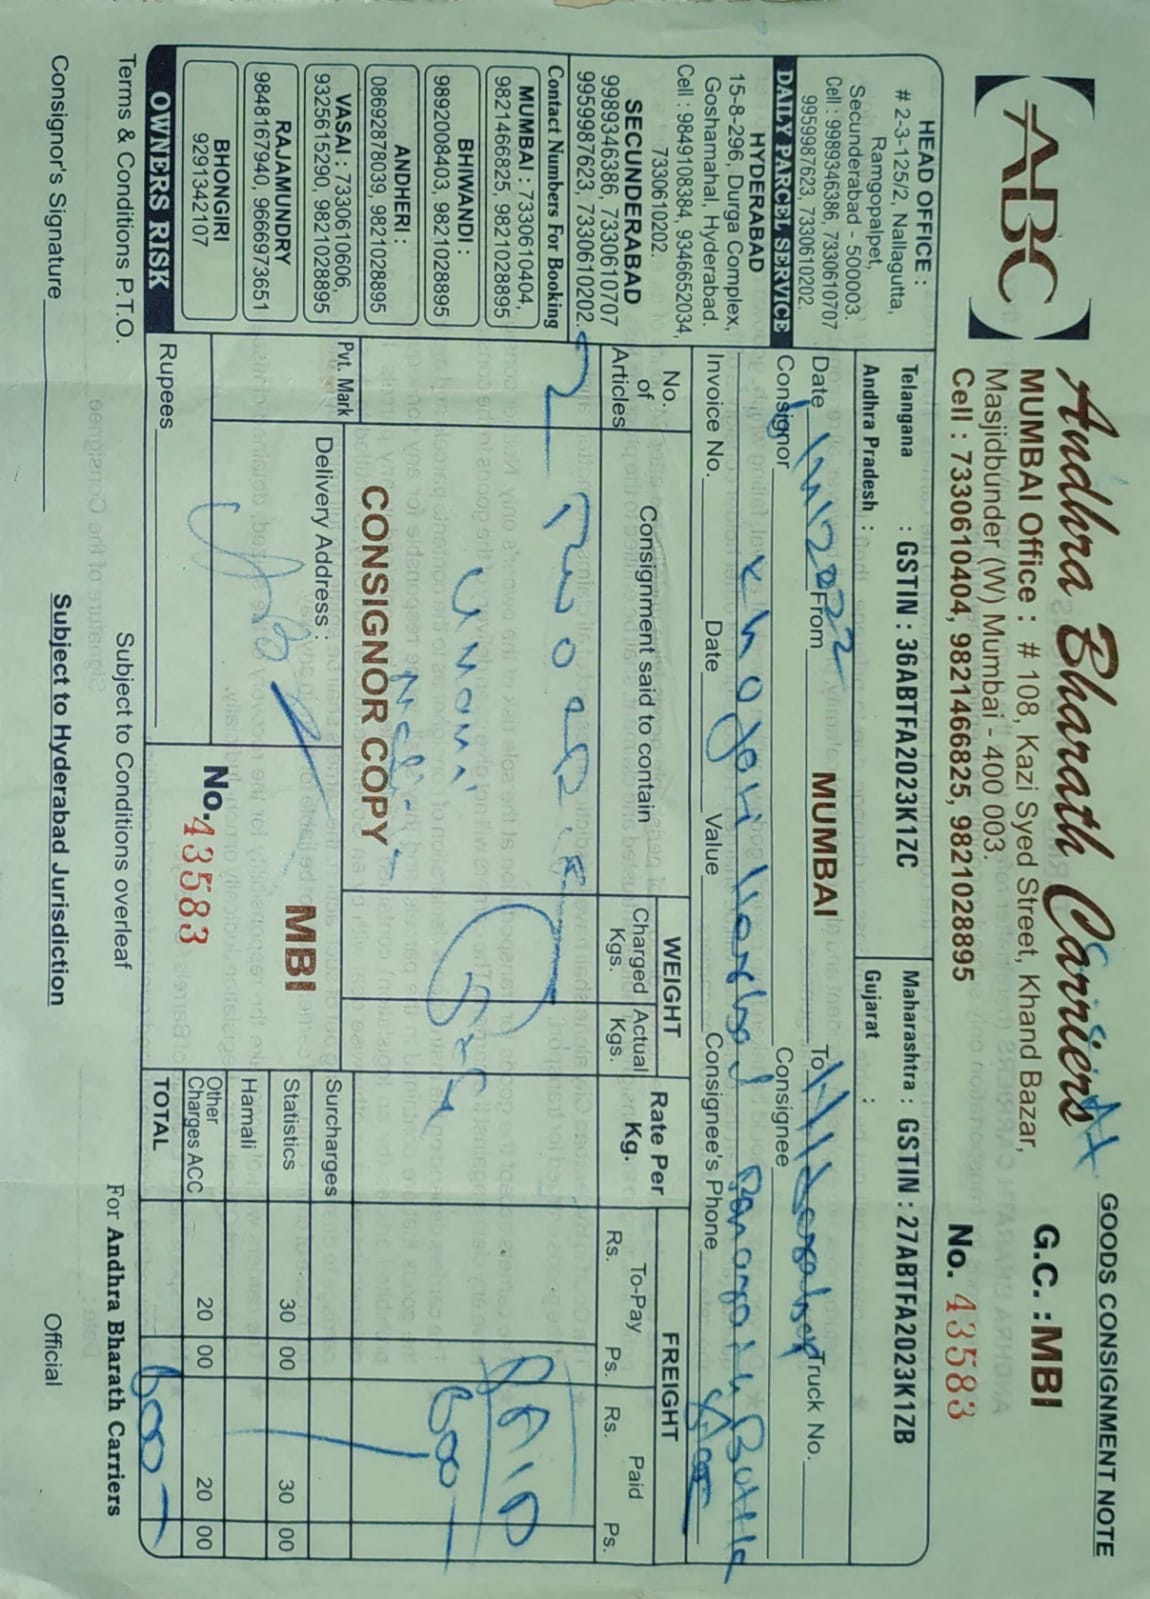 GOODS CONSIGNMENT NOTE
ABC
Andhra Bharath Carriers
MUMBAI Office : # 108, Kazi Syed Street, Khand Bazar,
Masjidbunder (W) Mumbai - 400 003.
Cell : 7330610404, 9821466825, 9821028895
G.C. : MBI
No. 43583
HEAD OFFICE :
# 2-3-125/2, Nallagutta,
Ramgopalpet,
Secunderabad - 500003.
Cell : 9989346386, 7330610707
9959987623, 7330610202.
DAILY PARCEL SERVICE
HYDERABAD
15-8-296, Durga Complex,
Goshamahal, Hyderabad.
Cell : 9849108384, 9346652034,
7330610202.
SECUNDERABAD
9989346386, 7330610707
9959987623, 7330610202
Contact Numbers For Booking
MUMBAI : 7330610404,
9821466825, 9821028895
BHIWANDI :
9892008403, 9821028895
ANDHERI :
08692878039, 9821028895
VASAI : 7330610606,
9325615290, 9821028895
RAJAMUNDRY
9848167940, 9666973651
BHONGIRI
9291342107
OWNERS RISK
Telangana : GSTIN : 36ABTFA2023K1ZC
Maharashtra : GSTIN : 27ABTFA2023K1ZB
Andhra Pradesh :
Gujarat :
Date From MUMBAI To Truck No.
Consignor Consignee
Invoice No. Date Value Consignee's Phone
No. of Articles
Consignment said to contain
WEIGHT
Charged Kgs.
Actual Kgs.
Rate Per Kg.
FREIGHT
To-Pay
Rs. Ps.
Paid
Rs. Ps.
2
PAID
600
CONSIGNOR COPY
Pvt. Mark
Delivery Address :
MBI
No. 43583
Surcharges
Statistics 30 00 30 00
Hamali
Other Charges ACC 20 00 20 00
TOTAL 600
Rupees
Terms & Conditions P.T.O.
Subject to Conditions overleaf
For Andhra Bharath Carriers
Consignor's Signature
Subject to Hyderabad Jurisdiction
Official